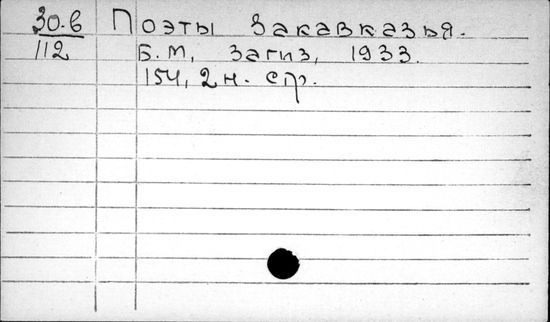 30.в Поэты Закавказья.
112 Б.М, Загиз, 1933.
154, 2 н. стр.